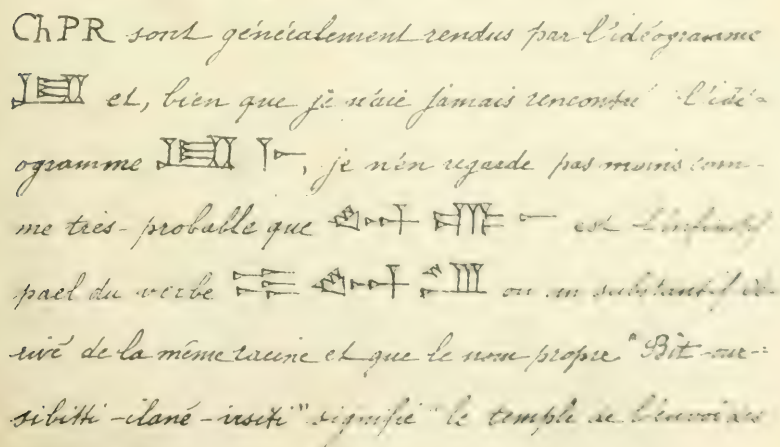 ChPR sont généralement rendus par l'idéogramme
et, bien que je n'aie jamais rencontré l'idé-
ogramme , je n'en regarde pas moins com-
me très-probable que est l'infinitif
pael du verbe ou un substantif dé-
rivé de la même racine et que le nom propre "Bît-our-
sibitti-ilané-irsiti" signifie "le temple de l'envoi des